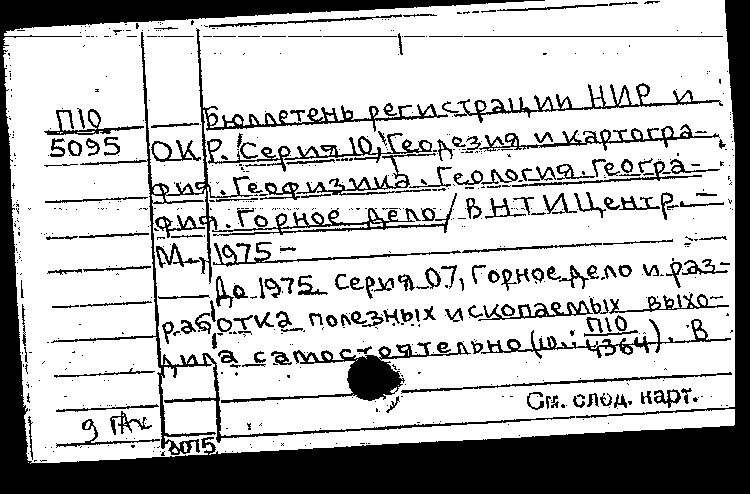 П10
5095
Бюллетень регистрации НИР и
ОКР. Серия 10, Геодезия и картогра-
фия. Геофизика. Геология. Геогра-
фия. Горное дело / ВНТИЦентр. –
М., 1975 –
До 1975. Серия 07, Горное дело и раз-
работка полезных ископаемых выхо-
дила самостоятельно (ш.: П10/4364). В
См. след. карт.